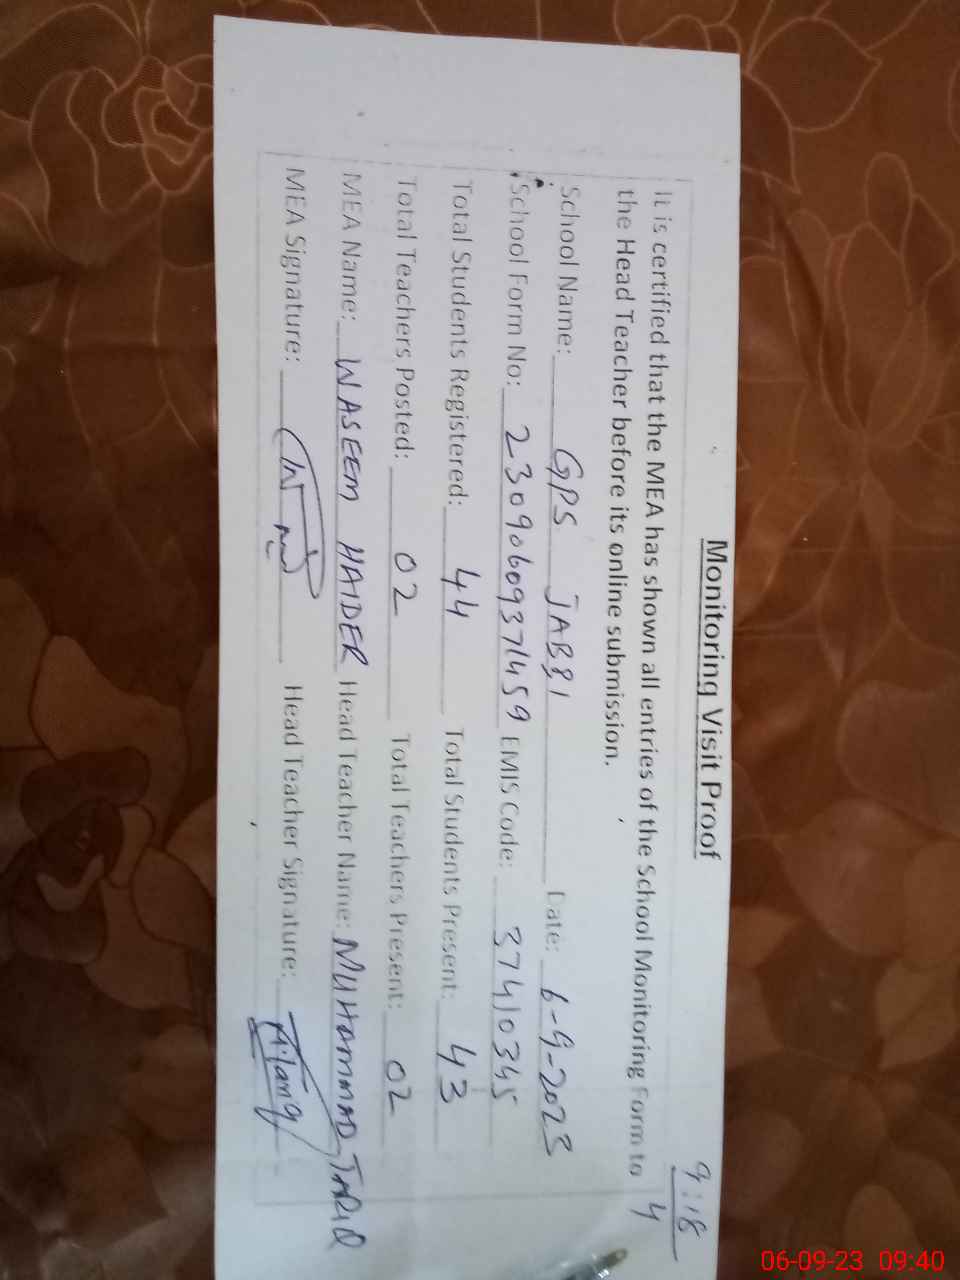 Monitoring Visit Proof
9:18
4
It is certified that the MEA has shown all entries of the School Monitoring Form to
the Head Teacher before its online submission.
School Name: GPS JABBI Date: 6-9-2023
School Form No: 23090609371459 EMIS Code: 37410345
Total Students Registered: 44 Total Students Present: 43
Total Teachers Posted: 02 Total Teachers Present: 02
MEA Name: WASEEM HAIDER Head Teacher Name: MUHAMMAD TARIQ
MEA Signature: Head Teacher Signature:
06-09-23 09:40